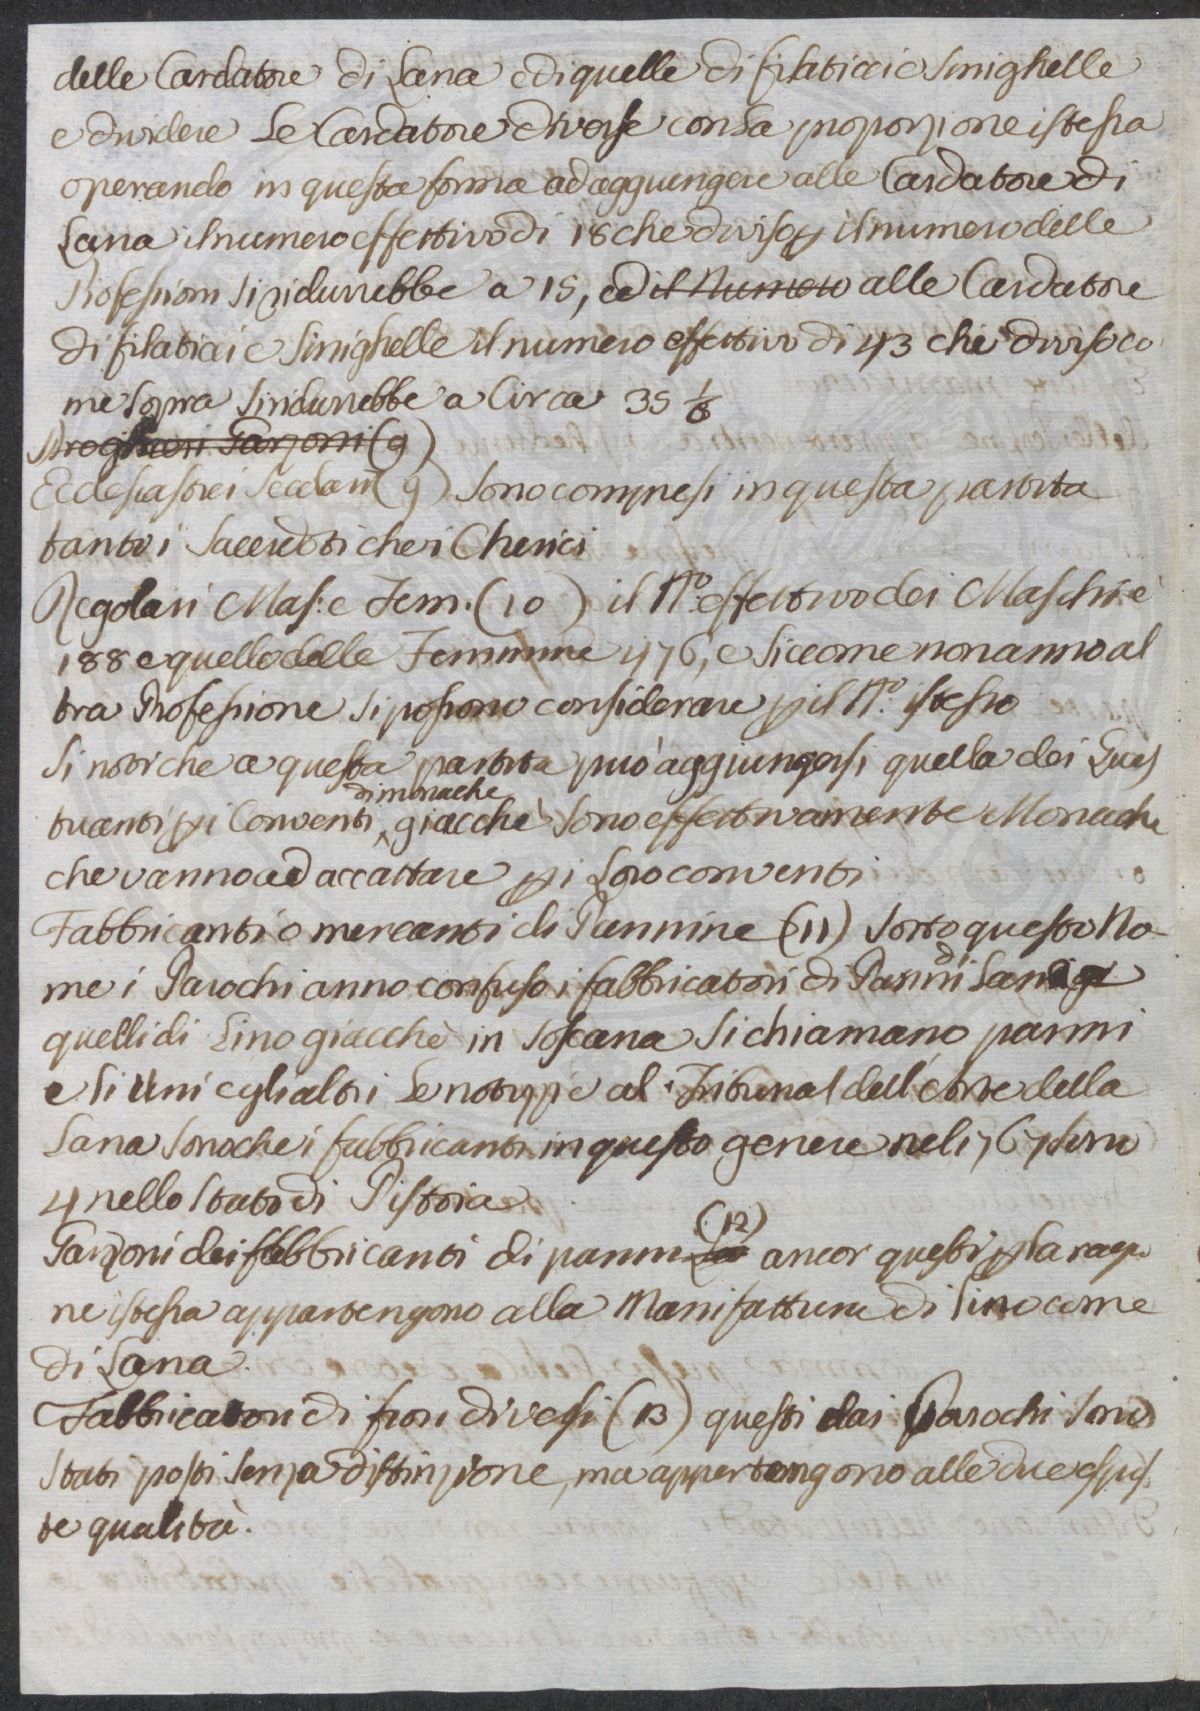 delle Cardatore di Lana e di quelle di filaticci e Sinighelle
e dividere Le Cardatore diverse con La proporzione istessa
operando in questa forma ad aggiungere alle Cardatore di
Lana il numero effettivo di 18 che diviso p il numero delle
Professioni Si ridurrebbe a 15, ed il Numero alle Cardatore
di filaticci e Sinighelle il numero effettivo di 43 che diviso co
me Sopra Si ridurrebbe a Circa 35 1/6
Garzoni (9)
Ecclesiastici Secolari (9) Sono compresi in questa partita
tanto i Sacerdoti che i Cherici
Regolari Mas: e Fem. (10) il N.º effettivo dei Maschi è
188 e quello delle Femmine 476, e Siccome non anno al
tra Professione Si possono considerare p il N.º istesso
Si noti che a questa partita può aggiungersi quella dei Ques
di monache
tuanti p i Conventi giacchè Sono effettivamente Monache
che vanno ad accattare p i Loro conventi
Fabbricanti o mercanti di Pannine (11) Sotto questo No-
me i Parochi anno confuso i fabbricatori di Panni Lani e
quelli di Lino giacchè in Toscana Si chiamano panni
e Li Uni e gli altri Le notizie al Tribunal dell'Arte della
Lana Sono che i fabbricanti in questo genere nel 1767 Sono
4 nello Stato di Pistoia
(12)
Garzoni dei fabbricanti di panni La ancor questi p la ragio
ne istessa appartengono alla Manifattura di Lino come
di Lana.
Fabbricatori di fiori diversi (13) questi dai Parochi Sono
Stati posti Senza distinzione, ma appartengono alle due espos
te qualità.